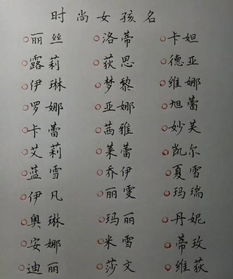 时尚女孩名
丽丝 洛蒂 卡妲
露莉 荻思 德亚
伊琳 梦黎 维娜
罗娜 亚娜 旭蕾
卡蕾 茜雅 妙芙
艾莉 茱蕾 凯尔
蓝雪 乔伊 夏雪
伊凡 丽雯 玛瑞
奥琳 玛丽 丹妮
安娜 米雪 蒂玫
迪丽 莎文 维荻